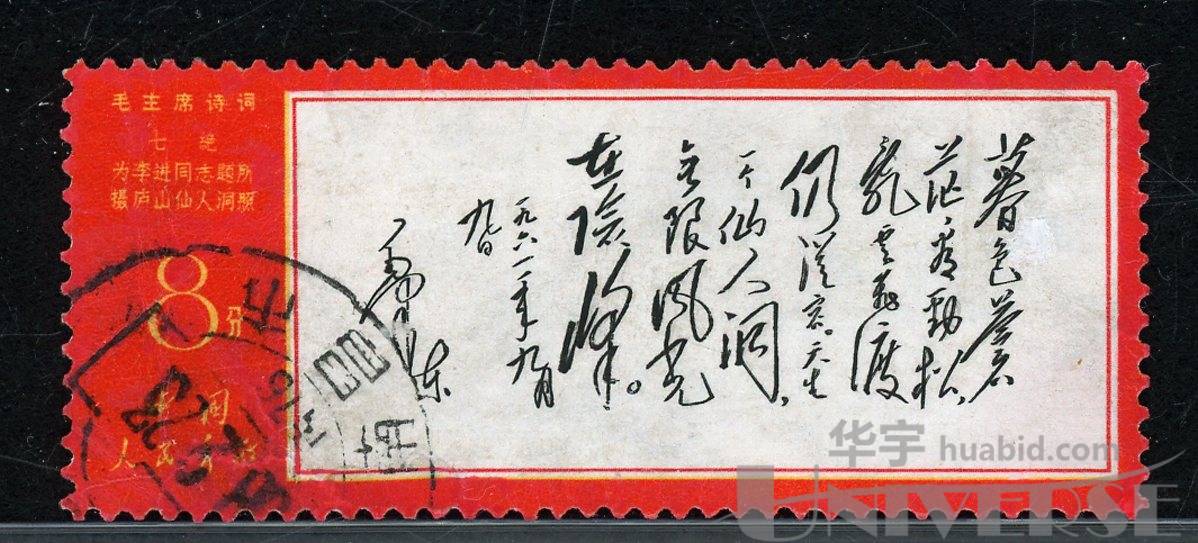 毛主席诗词
七绝
为李进同志题所
摄庐山仙人洞照
8分
中国
人民邮政
暮色苍
茫看劲松,
乱云飞渡
仍从容。天生
一个仙人洞,
无限风光
在险峰。
一九六一年九月
九日
毛泽东
华宇 huabid.com
UNIVERSE